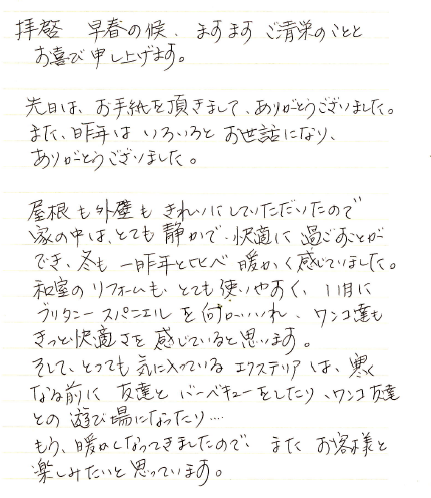 拝啓 早春の候、ますます ご清栄のことと
お喜び申し上げます。
先日は、お手紙を頂きまして、ありがとうございました。
また、昨年は いろいろと お世話になり、
ありがとうございました。
屋根も外壁も きれいにしていただいたので
家の中は、とても 静かで、快適に 過ごすことが
でき、冬も 一昨年と比べ 暖かく感じていました。
和室のリフォームも、とても 使いやすく、11月に
ブリタニー スパニエル を 何 いれ、ワンコ達も
きっと快適さを 感じていると思います。
そして、とっても 気に入っている エクステリアは、寒く
なる前に 友達と バーベキューをしたり、ワンコ友達
との 遊び場になったり…
もう、暖かくなってきましたので、また お客様と
楽しみたいと思っています。